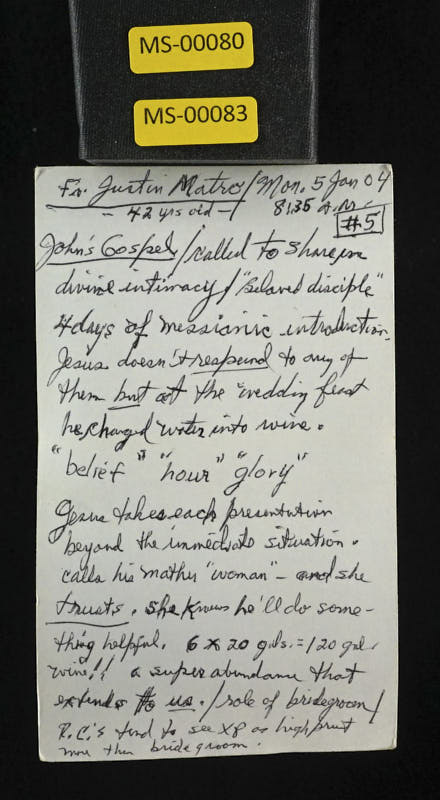 MS-00080
MS-00083
Fr. Justin Matro / Mon. 5 Jan 04
- 42 yrs old - / 8:35 A.M.
#5
John's Gospel / called to share in
divine intimacy / "beloved disciple"
4 days of messianic introduction.
Jesus doesn't respond to any of
them but at the wedding feast
he changed water into wine.
"belief" "hour" "glory"
Jesus takes each presentation
beyond the immediate situation.
calls his mother "woman" - and she
trusts. she knows he'll do some-
thing helpful. 6 x 20 gals. = 120 gal.
wine!! a super abundance that
extends to us. / role of bridegroom /
R.C.'s tend to see XP as high priest
more than bridegroom.